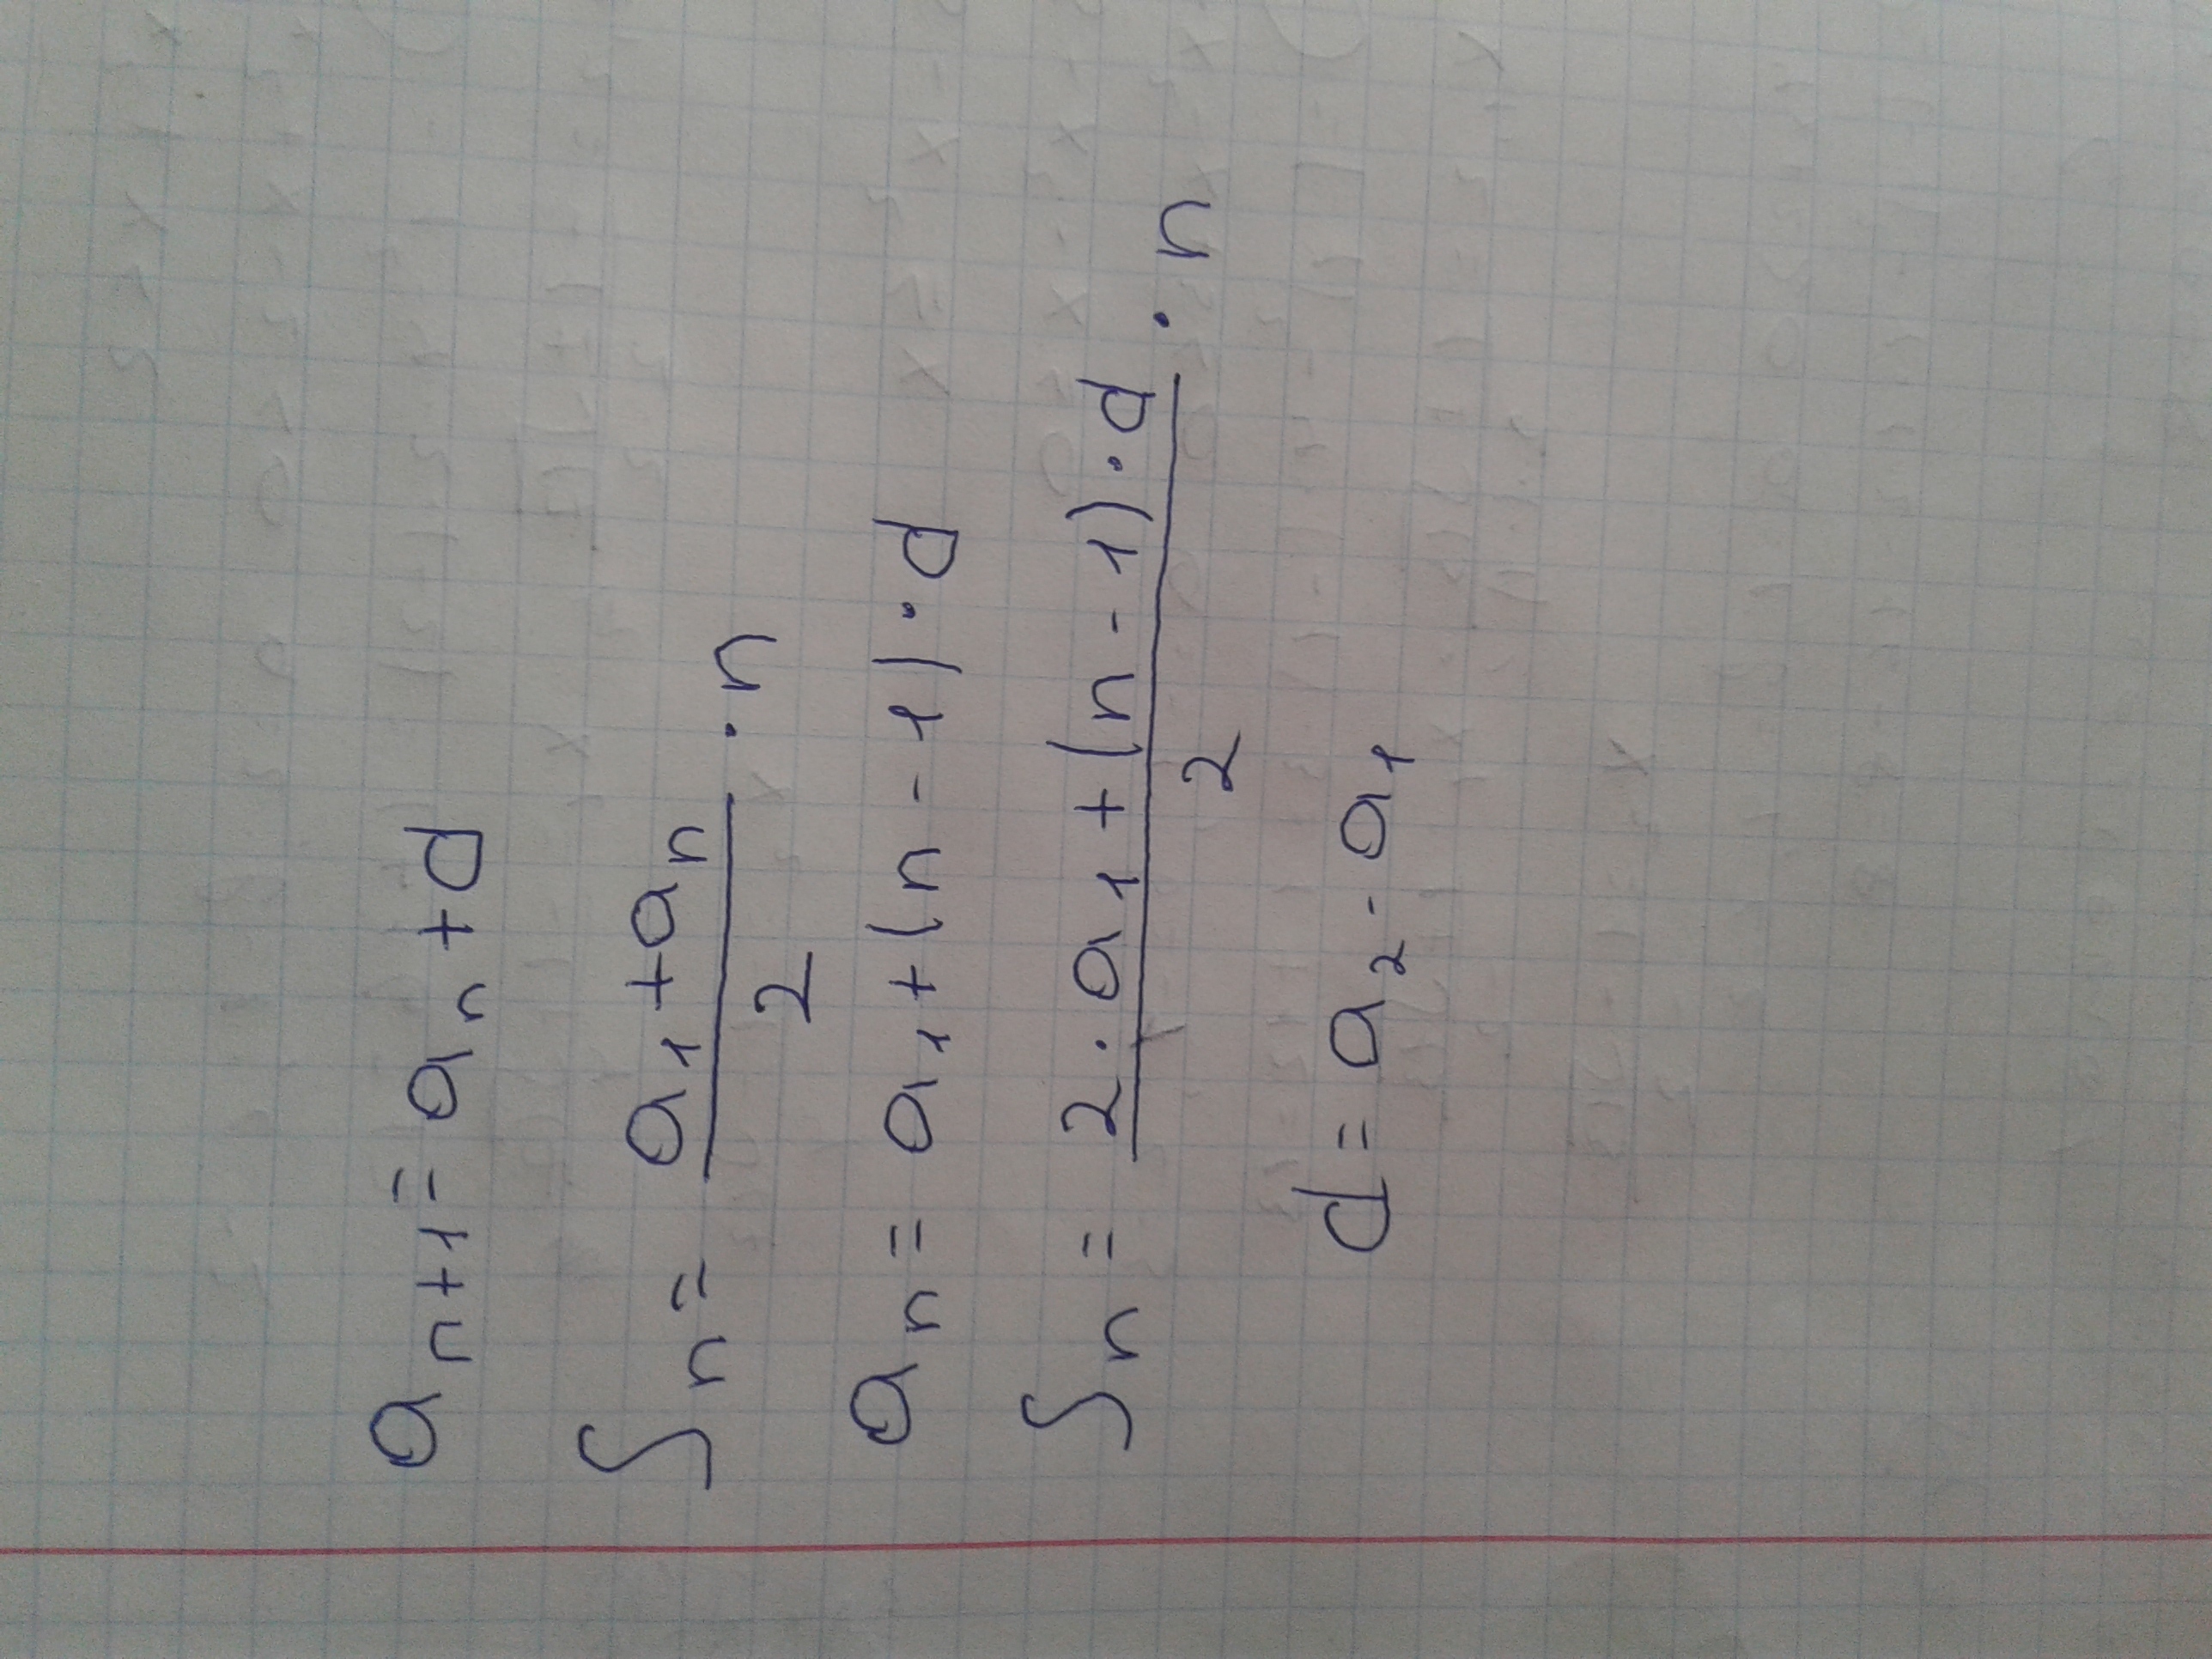 aₙ₊₁ = aₙ + d
Sₙ = (a₁ + aₙ)/2 · n
aₙ = a₁ + (n - 1) · d
Sₙ = (2 · a₁ + (n - 1) · d)/2 · n
d = a₂ - a₁